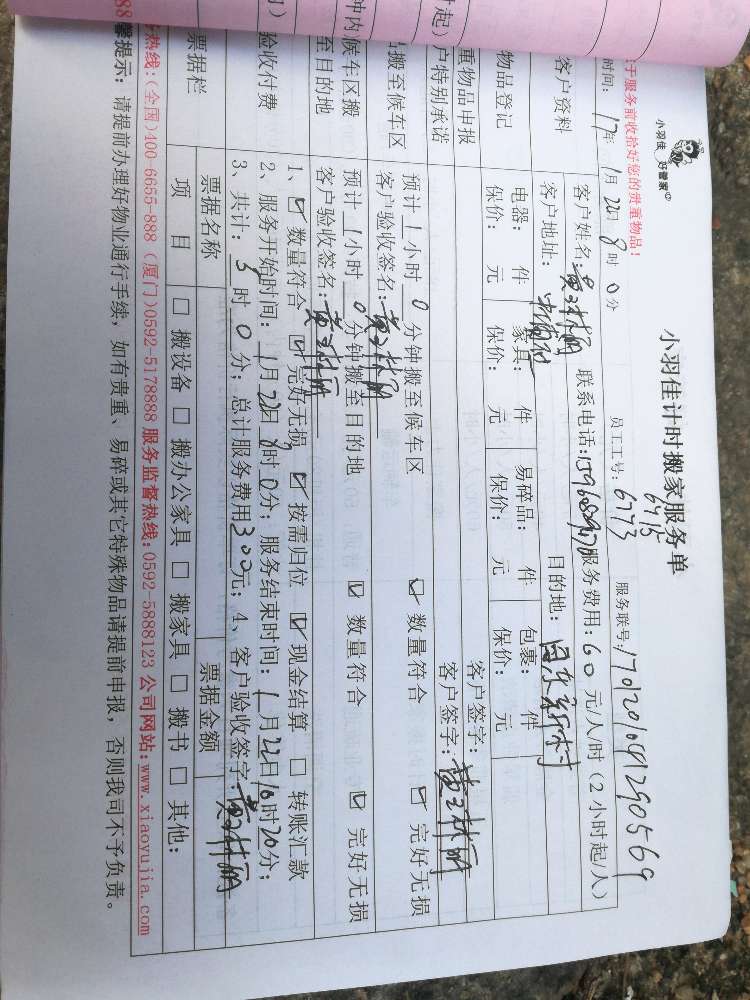 小羽佳 好管家
小羽佳计时搬家服务单
于服务前收拾好您的贵重物品!
员工工号: 6773
6415
服务联号:
时间: 17年 1月22日 8时 0分
客户资料
客户姓名: 联系电话: 服务费用: 60 元/人/时 (2小时起/人)
客户地址: 目的地:
物品登记
电器: 件 家具: 件 易碎品: 件 包裹: 件
保价: 元 保价: 元 保价: 元 保价: 元
客户签字:
重物品申报
户特别承诺
客户签字:
起)
搬至候车区
预计 1 小时 0 分钟搬至候车区 数量符合 完好无损
客户验收签名:
钟内候车区搬
至目的地
预计 1 小时 0 分钟搬至目的地 数量符合 完好无损
客户验收签名:
验收付费
1、 数量符合 完好无损 按需归位 现金结算 转账汇款
2、服务开始时间: 1月22日8时0分; 服务结束时间: 1月22日10时20分;
3、共计: 时 0 分; 总计服务费用300元; 4、客户验收签字:
票据栏
票据名称 票据金额
项 目 搬设备 搬办公家具 搬家具 搬书 其他:
热线:(全国)400-6655-888 (厦门)0592-5178888 服务监督热线:0592-5888123 公司网站:www.xiaoyujia.com
馨提示: 请提前办理好物业通行手续, 如有贵重、易碎或其它特殊物品请提前申报, 否则我司不予负责。